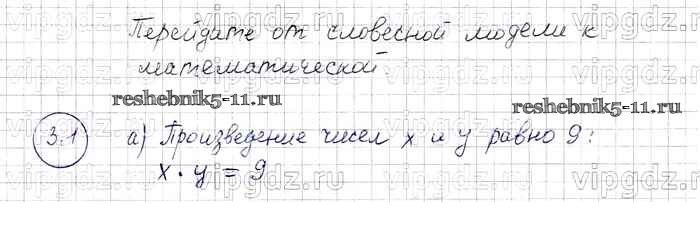 Перейдите от словесной модели к
математической.
reshebnik5-11.ru
reshebnik5-11.ru
3.1 а) Произведение чисел x и y равно 9:
x · y = 9
vipgdz.ru vipgdz.ru vipgdz.ru vipgdz.ru